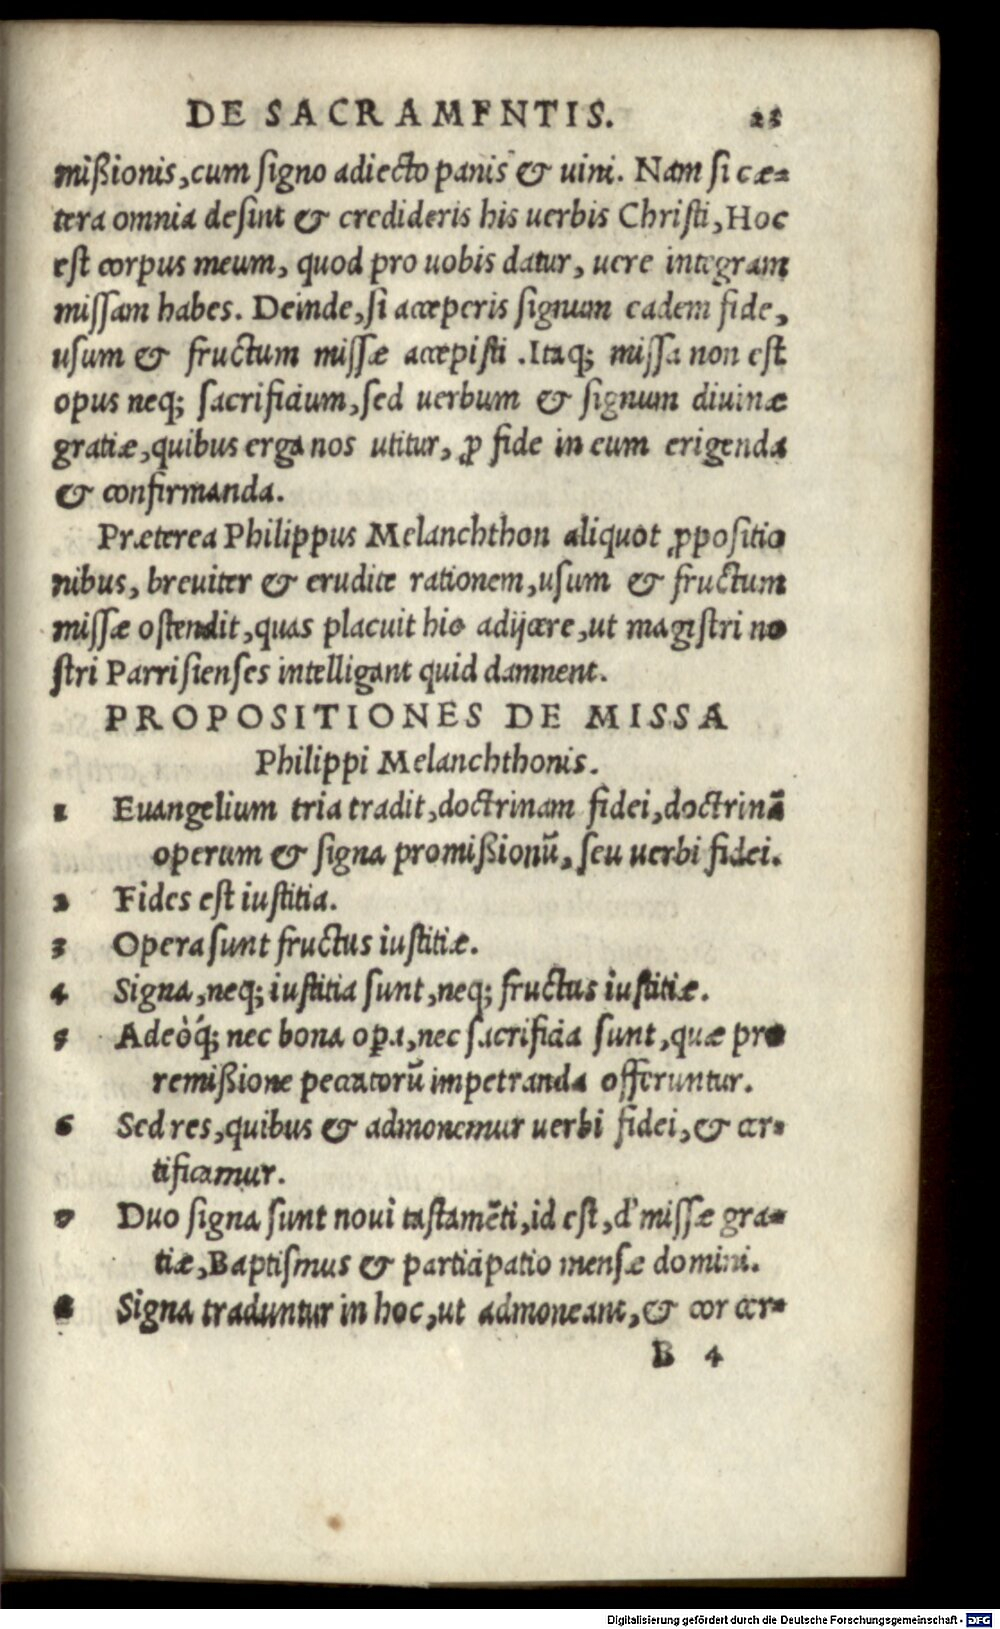 DE SACRAMENTIS. 23
mißionis, cum signo adiecto panis & uini. Nam si cæ-
tera omnia desint & credideris his uerbis Christi, Hoc
est corpus meum, quod pro uobis datur, uere integram
missam habes. Deinde, si acceperis signum eadem fide,
usum & fructum missæ accepisti. Itaq; missa non est
opus neq; sacrificium, sed uerbum & signum diuinæ
gratiæ, quibus erga nos utitur, ꝓ fide in eum erigenda
& confirmanda.
Præterea Philippus Melanchthon aliquot ꝓpositio
nibus, breuiter & erudite rationem, usum & fructum
missæ ostendit, quas placuit hic adijcere, ut magistri no
stri Parrisienses intelligant quid damnent.
PROPOSITIONES DE MISSA
Philippi Melanchthonis.
1 Euangelium tria tradit, doctrinam fidei, doctrinã
operum & signa promißionũ, seu uerbi fidei.
2 Fides est iustitia.
3 Opera sunt fructus iustitiæ.
4 Signa, neq; iustitia sunt, neq; fructus iustitiæ.
5 Adeòq́; nec bona oꝑa, nec sacrificia sunt, quæ pro
remißione peccatorũ impetranda offeruntur.
6 Sed res, quibus & admonemur uerbi fidei, & cer-
tificamur.
7 Duo signa sunt noui testamẽti, id est, d' missæ gra-
tiæ, Baptismus & participatio mensæ domini.
8 Signa traduntur in hoc, ut admoneant, & cor cer-
B 4
Digitalisierung gefördert durch die Deutsche Forschungsgemeinschaft - DFG